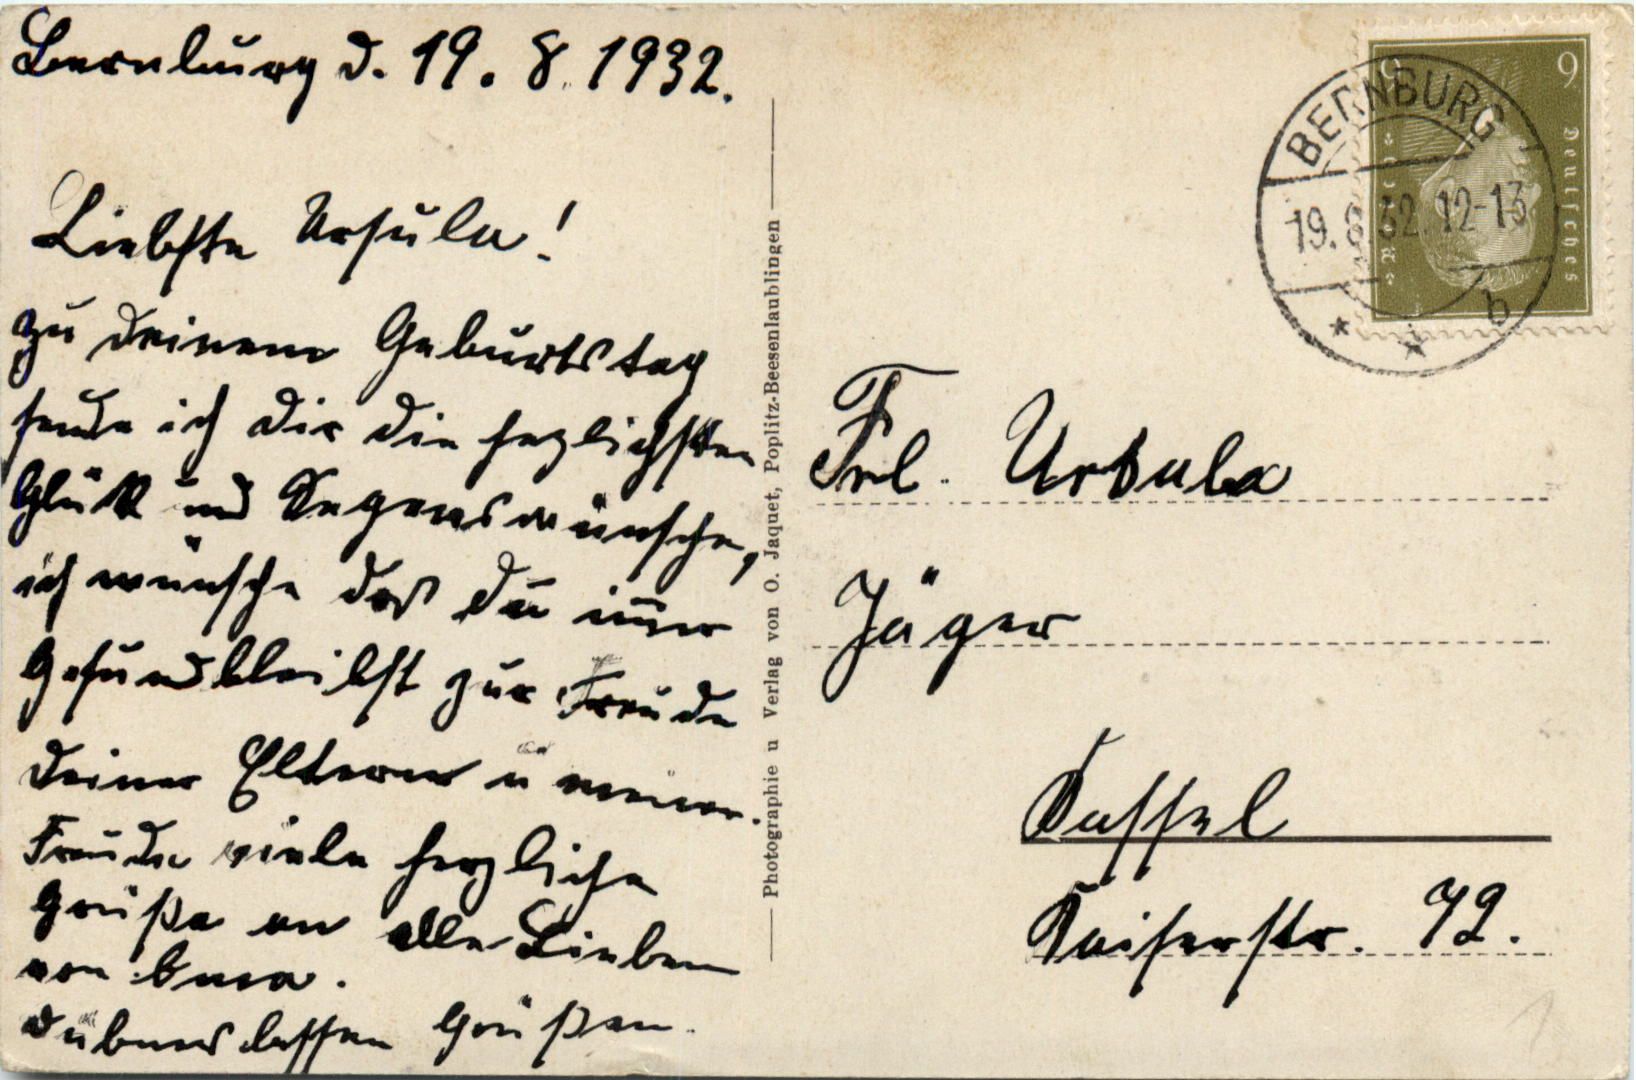 Bernburg d. 19. 8. 1932.
Liebste Ursula!
zu deinem Geburtstag
sende ich dir die herzlichsten
Glück und Segenswünsche,
ich wünsche das du immer
Gesundbleibst zur Freude
deiner Eltern u meiner
Freude viele herzliche
Grüße an alle Lieben
von
lassen Grüßen.
Photographie u Verlag von O. Jaquet, Poplitz-Beesenlaublingen
9
Deutsches
BERNBURG
19.8.32.12-13
b
Frl. Ursula
Jäger
Kassel
Kaiserstr. 72.